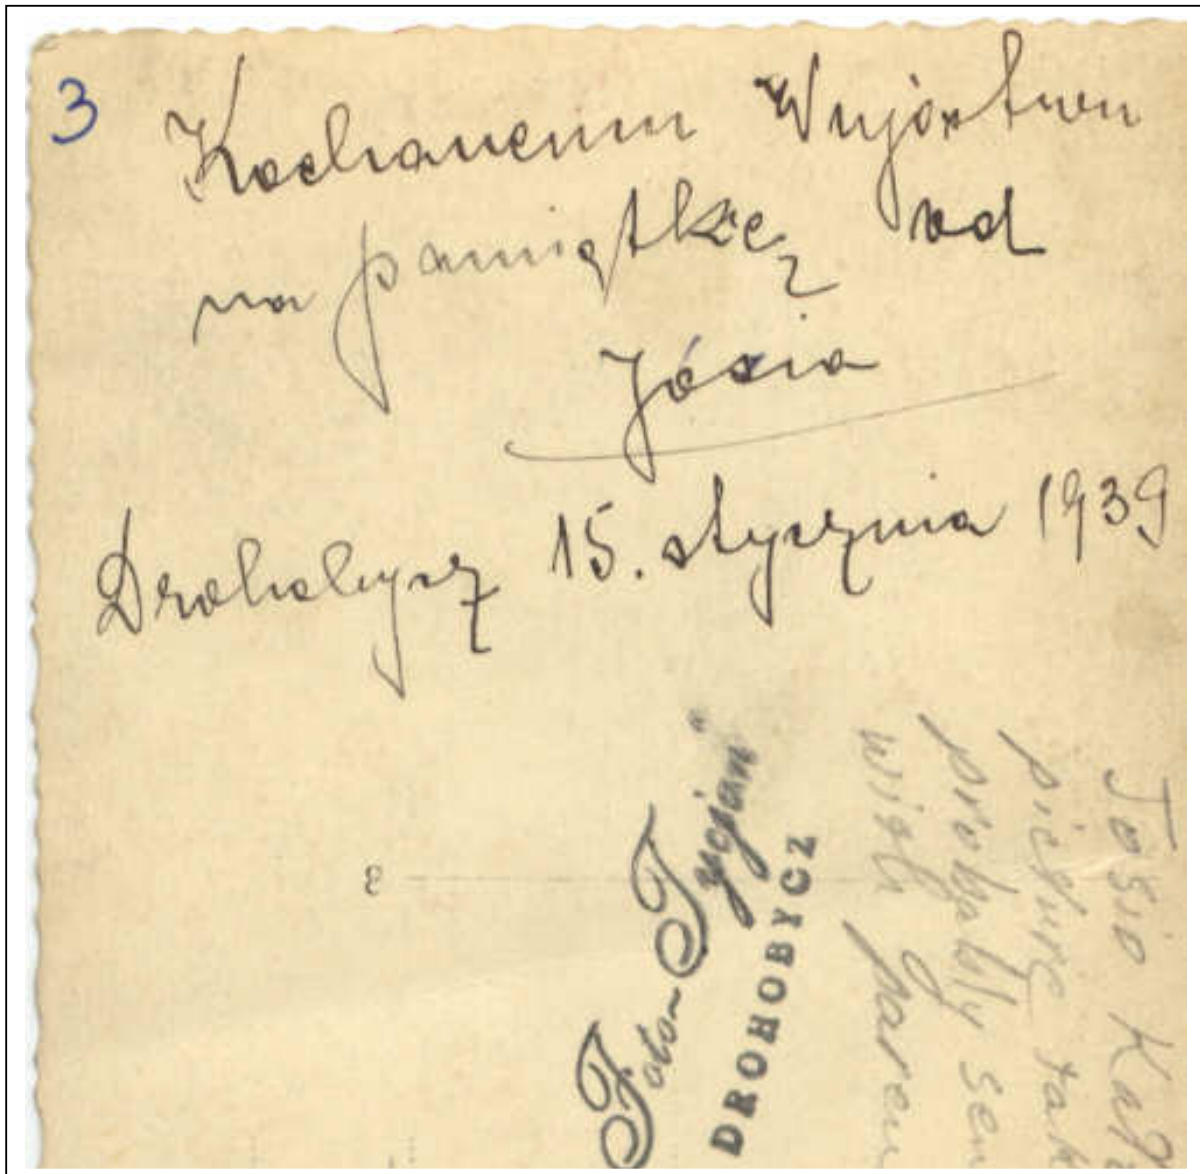 3
Kochanemu Wujostwu
na pamiątkę od
Józia
Drohobycz 15. stycznia 1939
3
Foto-Trojan"
DROHOBYCZ
Tosio
picture tak
probably sen
with paren